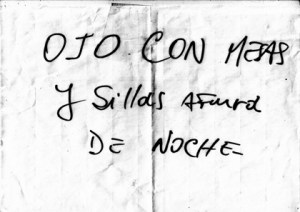 OJO CON MESAS
Y Sillas AFUERA
DE NOCHE